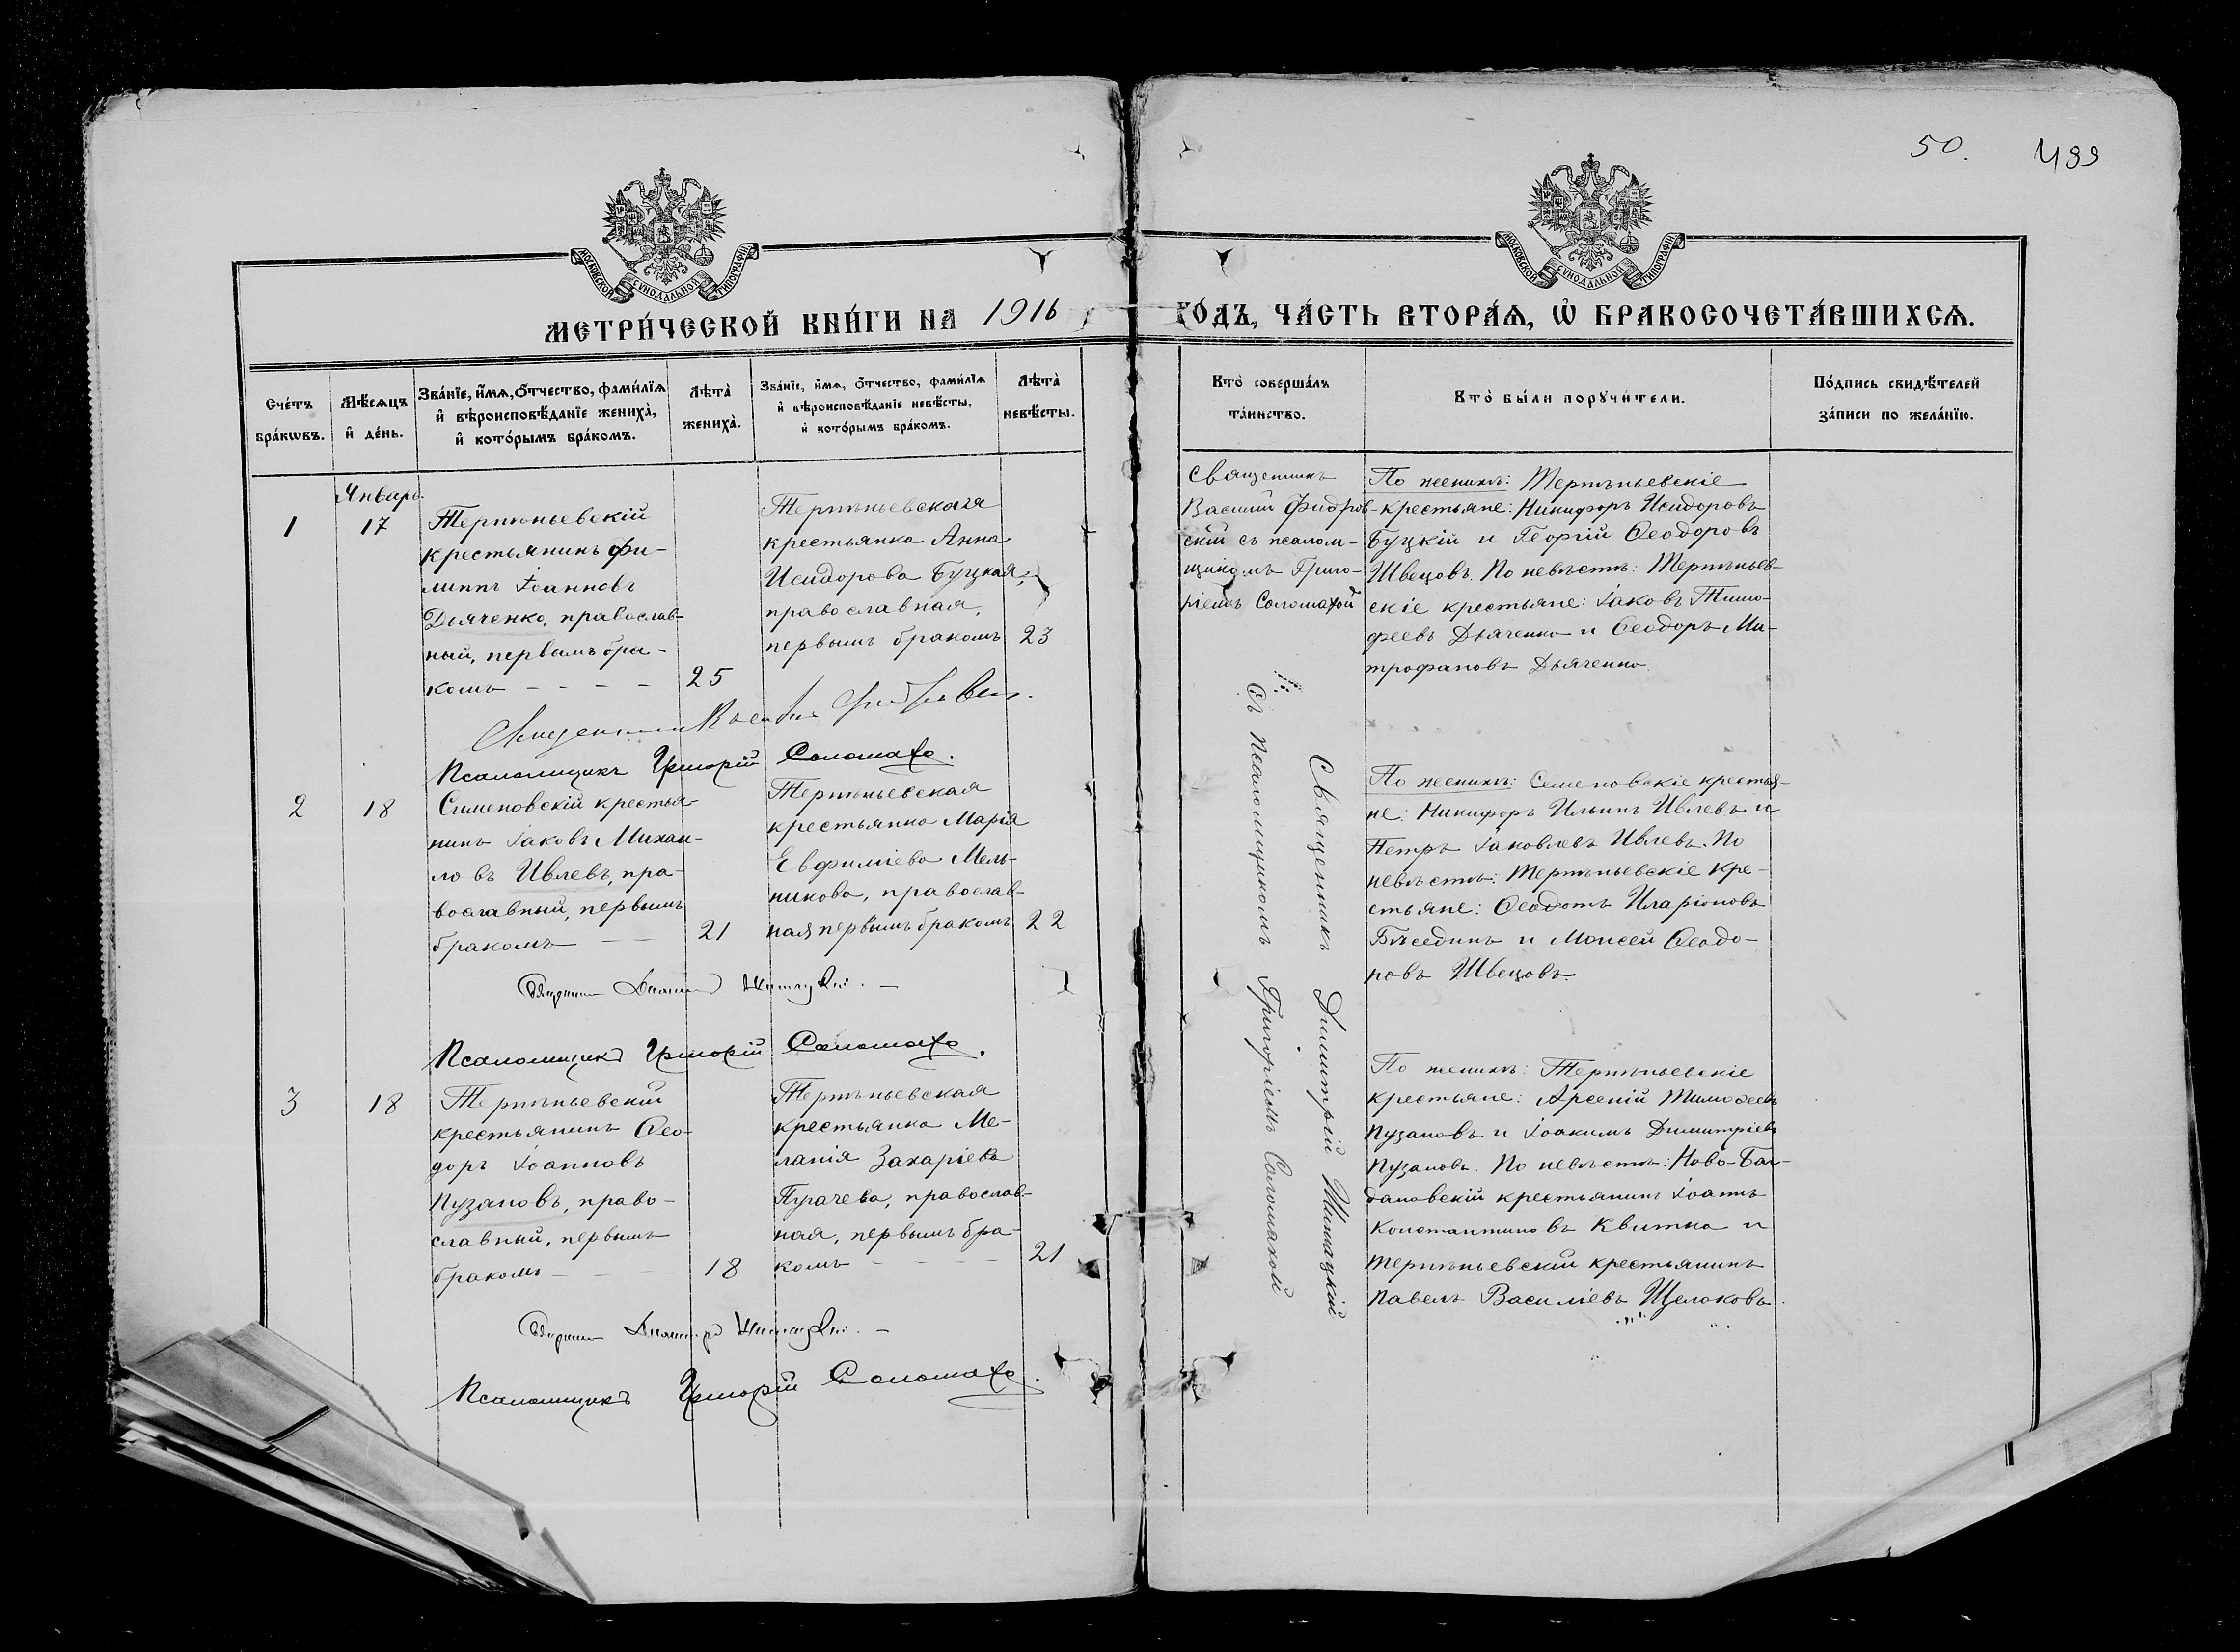 50. 499
МОСКОВСКОЙ СѴНОДАЛЬНОЙ ТИПОГРАФІИ
МОСКОВСКОЙ СѴНОДАЛЬНОЙ ТИПОГРАФІИ
МЕТРИ́ЧЕСКОЙ КНИ́ГИ НА 1916 ГО́ДЪ, ЧА́СТЬ ВТОРА́Ѧ, Ѡ БРАКОСОЧЕТА́ВШИХСѦ.
Сче́тъ
бра́кѡвъ.
Мѣ́сѧцъ
и҆ де́нь.
Зва́нїе, и҆́мѧ, ѻ҆́тчество, фами́лїѧ
и҆ вѣроисповѣ́данїе жениха̀,
и҆ кото́рымъ бра́комъ.
Лѣ́та̀
жениха̀.
Зва́нїе, и҆́мѧ, ѻ҆́тчество, фами́лїѧ
и҆ вѣроисповѣ́данїе невѣ́сты,
и҆ кото́рымъ бра́комъ.
Лѣ́та̀
невѣ́сты.
Кто̀ соверша́лъ
та́инство.
Кто̀ бы́ли порꙋчи́тели.
По́дпись свидѣ́телей
за́писи по жела́нїю.
Январь
1
17
Терпѣньевскій
крестьянинъ Фи-
липпъ Іоанновъ
Дьяченко, православ-
ный, первымъ бра-
комъ - - - -
25
Терпѣньевская
крестьянка Анна
Исидорова Буцкая,
православная,
первымъ бракомъ
23
Священникъ
Василій Федоров-
скій съ псалом-
щикомъ Григо-
ріемъ Соломахой
По женихѣ: Терпѣньевскіе
крестьяне: Никифоръ Исидоровъ
Буцкій и Георгій Ѳеодоровъ
Швецовъ. По невѣстѣ: Терпѣньев-
скіе крестьяне: Іаковъ Тимо-
феевъ Дьяченко и Ѳеодоръ Ми-
трофановъ Дьяченко.
Псаломщикъ Григорій Соломаха.
2
18
Семеновскій крестья-
нинъ Іаковъ Михаи-
ловъ Ивлевъ, пра-
вославный, первымъ
бракомъ - -
21
Терпѣньевская
крестьянка Марія
Евфиміева Мель-
никова, православ-
ная первымъ бракомъ
22
Священникъ Димитрій Шишацкій
съ псаломщикомъ Григоріемъ Соломахой
По женихѣ: Семеновскіе крестья-
не: Никифоръ Ильинъ Ивлевъ и
Петръ Іаковлевъ Ивлевъ. По
невѣстѣ: Терпѣньевскіе кре-
стьяне: Ѳеодотъ Иларіоновъ
Бѣсединъ и Моисей Ѳеодо-
ровъ Швецовъ.
Псаломщикъ Григорій Соломаха.
3
18
Терпѣньевскій
крестьянинъ Ѳео-
доръ Іоанновъ
Пузановъ, право-
славный, первымъ
бракомъ - - -
18
Терпѣньевская
крестьянка Ме-
ланія Захаріева
Пугачева, православ-
ная, первымъ бра-
комъ - - - -
21
По женихѣ: Терпѣньевскіе
крестьяне: Арсеній Тимоѳеевъ
Пузановъ и Іоакимъ Димитріевъ
Пузановъ. По невѣстѣ: Ново-Бог-
дановскій крестьянинъ Іоаннъ
Константиновъ Квитка и
терпѣньевскій крестьянинъ
Павелъ Василіевъ Щелоковъ.
Псаломщикъ Григорій Соломаха.